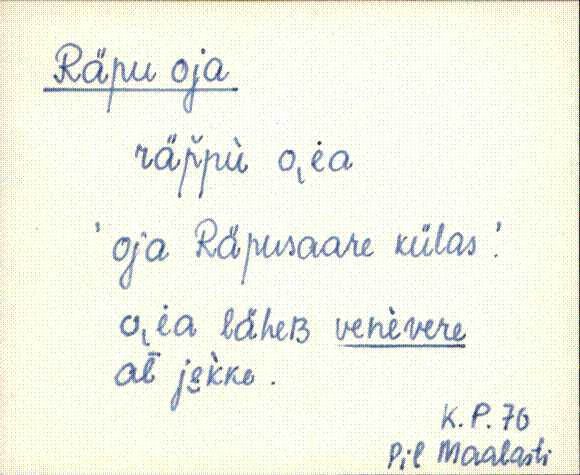 Räpu oja
räp̆pù o̖i̇a
' oja Räpusaare külas '
o̖i̇a läheʙ venèvere
al̄ jɛ̀kke .
K.P. 76
Pil Maalasti